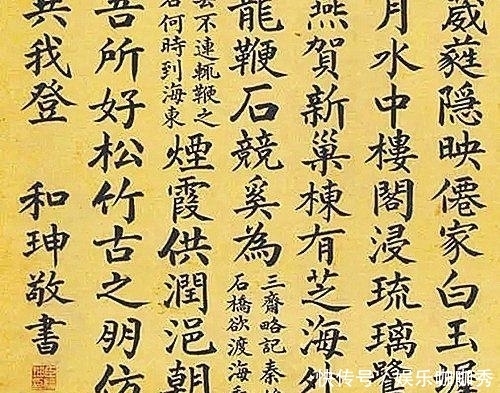 葳蕤隱映僊家白玉
月水中樓閣浸琉璃
燕賀新巢棟有芝海
龍鞭石競奚為
三齋略記秦
石橋欲渡海
去不連輒鞭之
石何時到海東
煙霞供潤浥朝
吾所好松竹古之朋仿
共我登
和珅敬書
快传号/娱乐